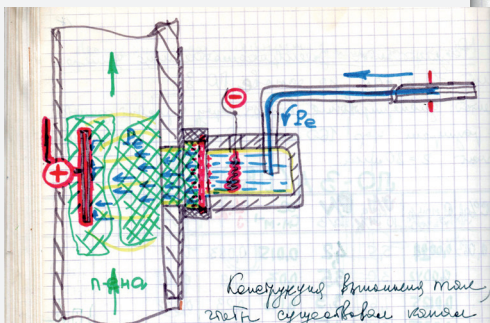 ⊖
Pe
Pe
⊕
пена
Конструкция выполнена так,
чтобы существовал канал